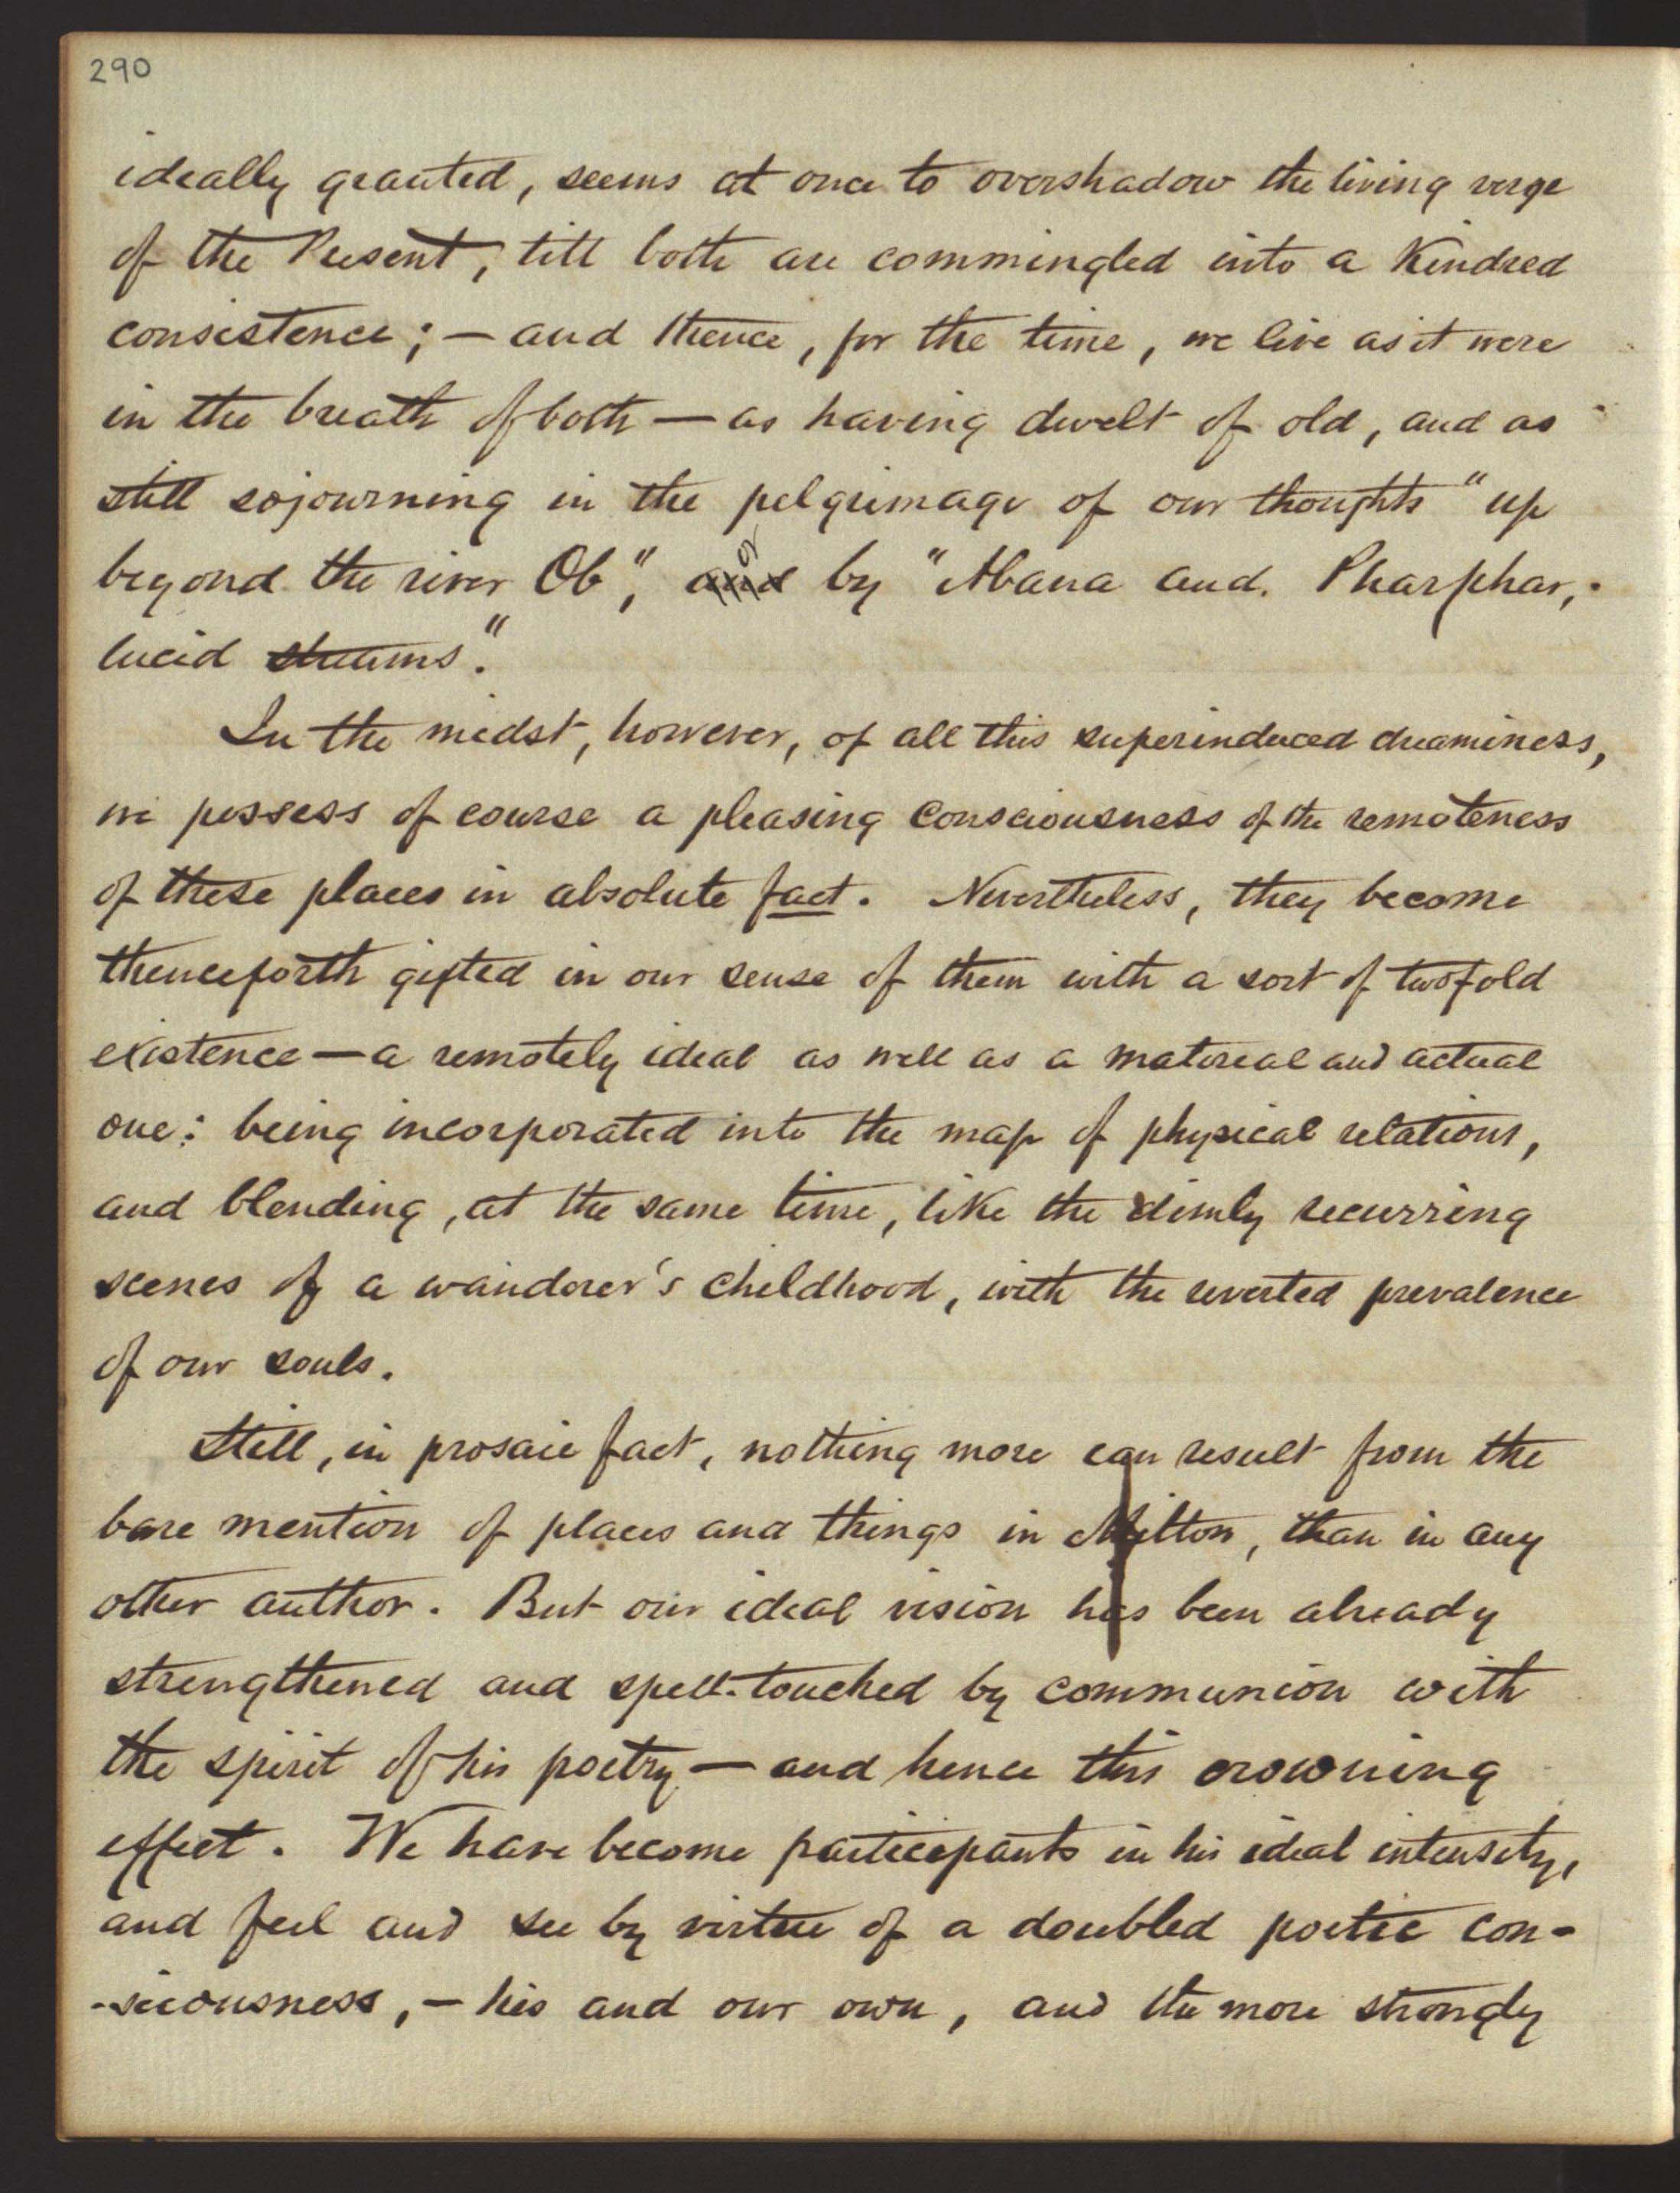 290
ideally granted, seems at once to overshadow the living verge
of the Present, till both are commingled into a Kindred
consistence; — and thence, for the time, we live as it were
in the breath of both — as having dwelt of old, and as
still sojourning in the pilgrimage of our thoughts "up
beyond the river Ob", and or by "Abana and Pharphar,
lucid streams."
In the midst, however, of all this superinduced dreaminess,
we possess of course a pleasing consciousness of the remoteness
of these places in absolute fact. Nevertheless, they become
thenceforth gifted in our sense of them with a sort of twofold
existence — a remotely ideal as well as a material and actual
one: being incorporated into the map of physical relations,
and blending, at the same time, like the dimly recurring
scenes of a wanderer's childhood, with the reverted prevalence
of our souls.
Still, in prosaic fact, nothing more can result from the
bare mention of places and things in Milton, than in any
other author. But our ideal vision has been already
strengthened and spell-touched by communion with
the spirit of his poetry — and hence this crowning
effect. We have become participants in his ideal intensity,
and feel and see by virtue of a doubled poetic con-
-sciousness, — his and our own, and the more strongly